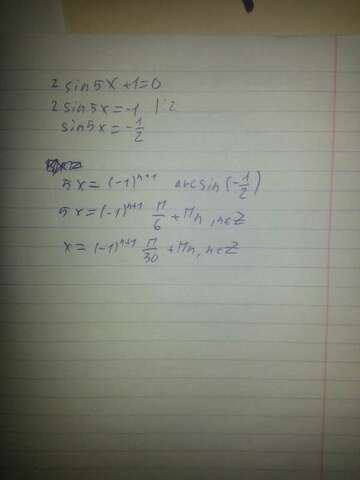 2 sin5x+1=0
2 sin5x=-1 |:2
sin5x=-1/2
5x=(-1)^{n+1} arcsin(-1/2)
5x=(-1)^{n+1} π/6 +πn, n∈Z
x=(-1)^{n+1} π/30 +πn, n∈Z